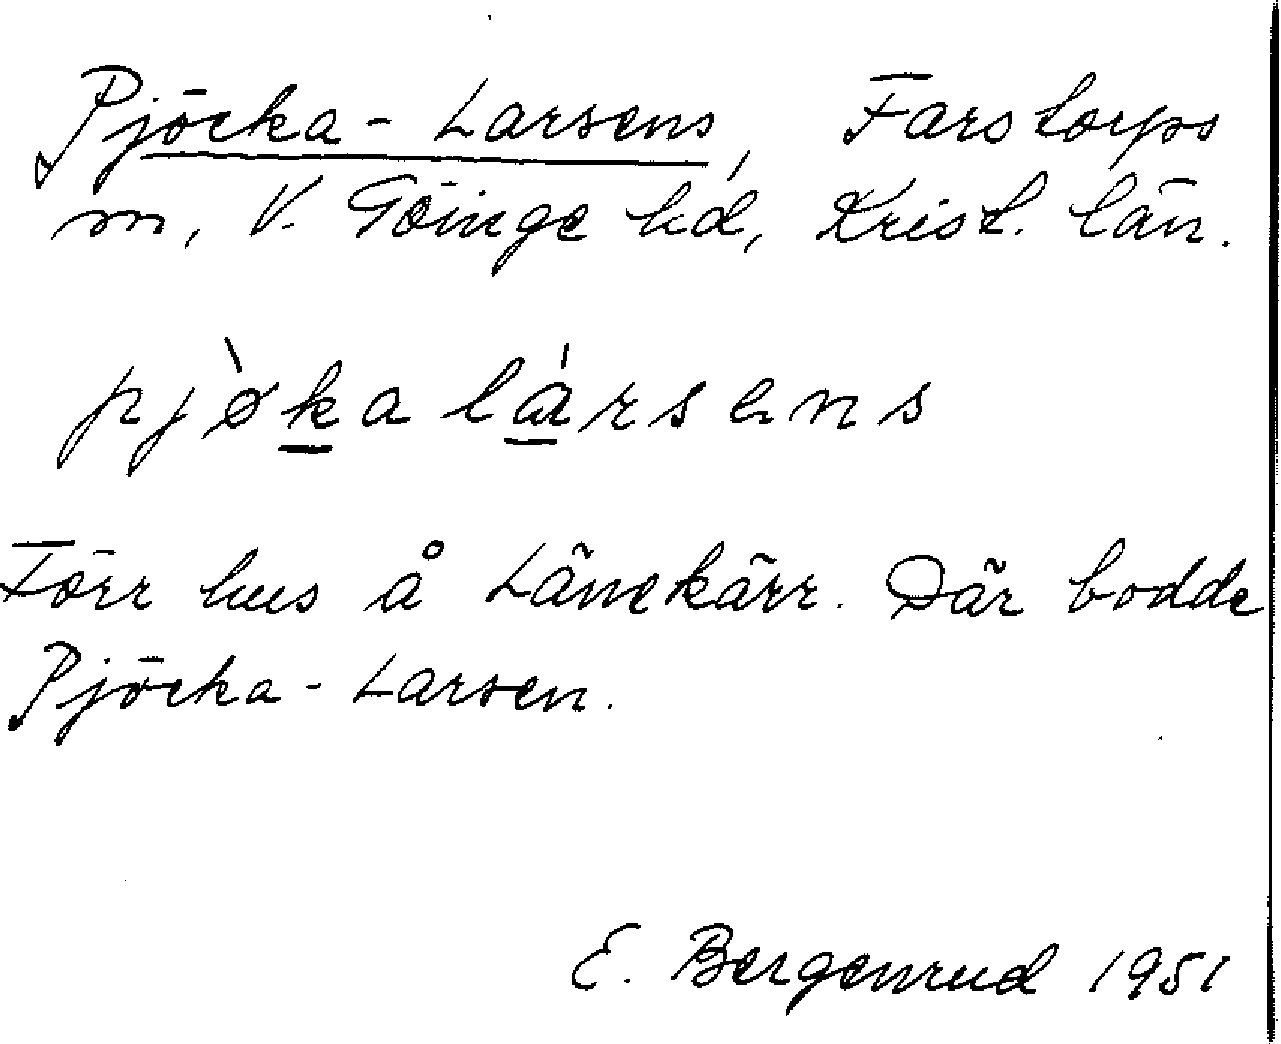 Pjöcka - Larsens, Farstorps
sn, V. Göinge hd, Krist. län.
pjø̀ka lársens
Förr hus å Länekärr. Där bodde
Pjöcka - Larsen.
E. Bergenrud 1951